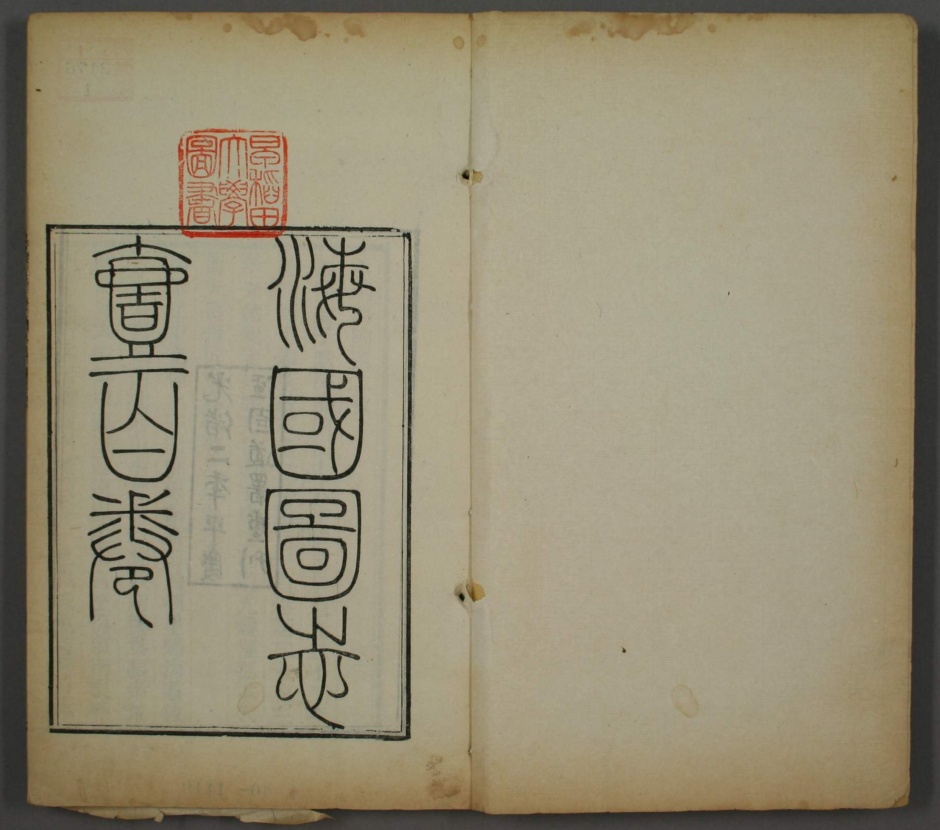 早稻田
大學
圖書
海國圖志
壹百卷